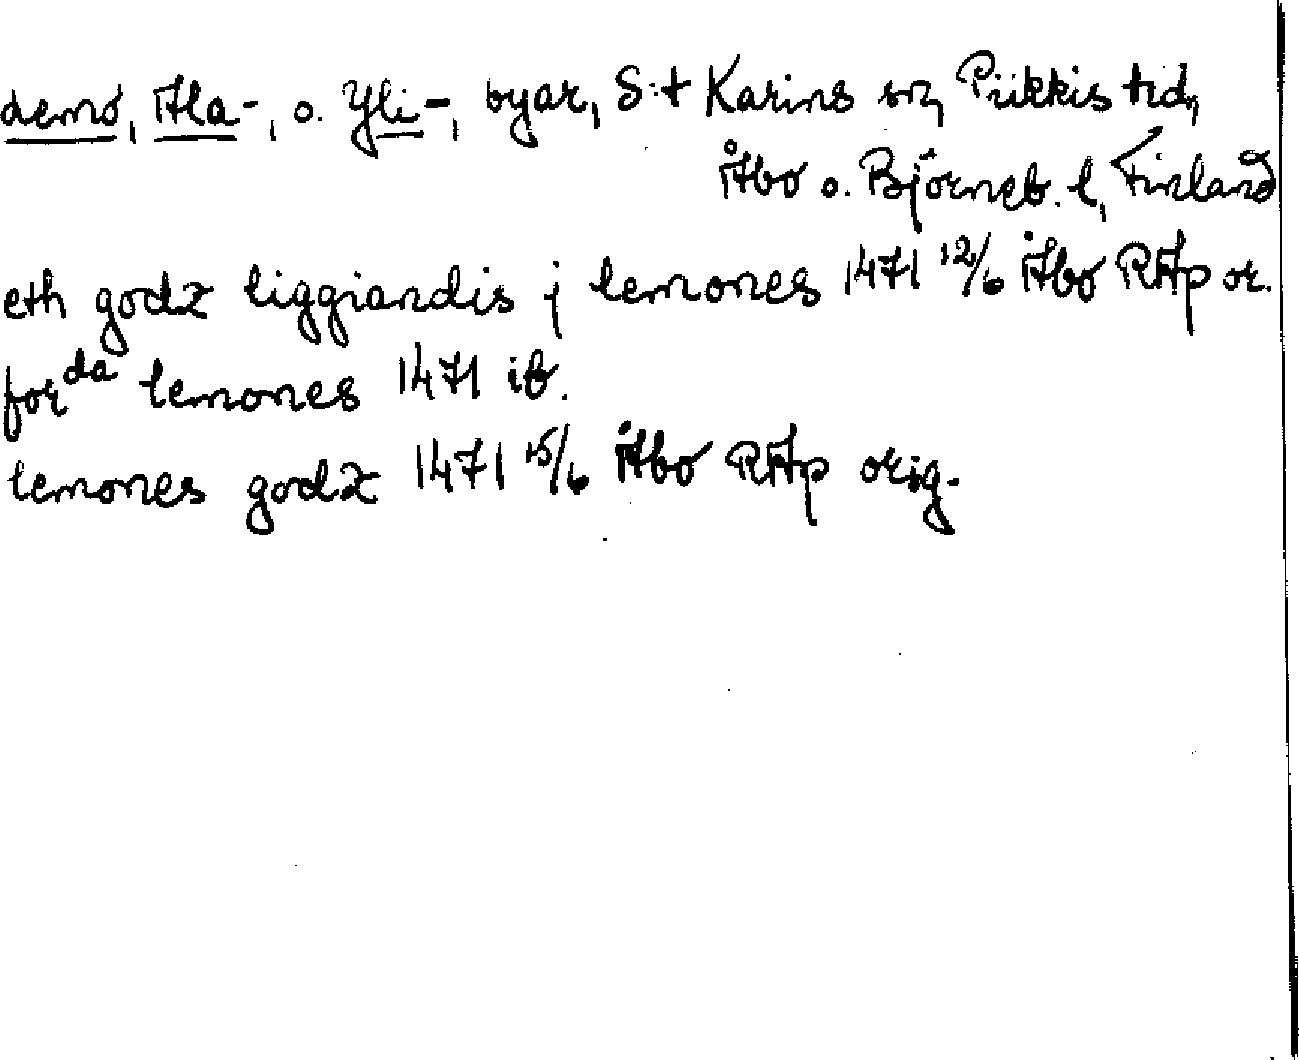 Lemo, Ala-, o. Yli-, byar, S:t Karins sn, Piikkis hd,
Åbo o. Björneb. l, Finland
eth godz liggiandis j lemones 1471 12/6 Åbo RAp or.
for da lemones 1471 ib.
lemones godz 1471 15/6 Åbo RAp orig.